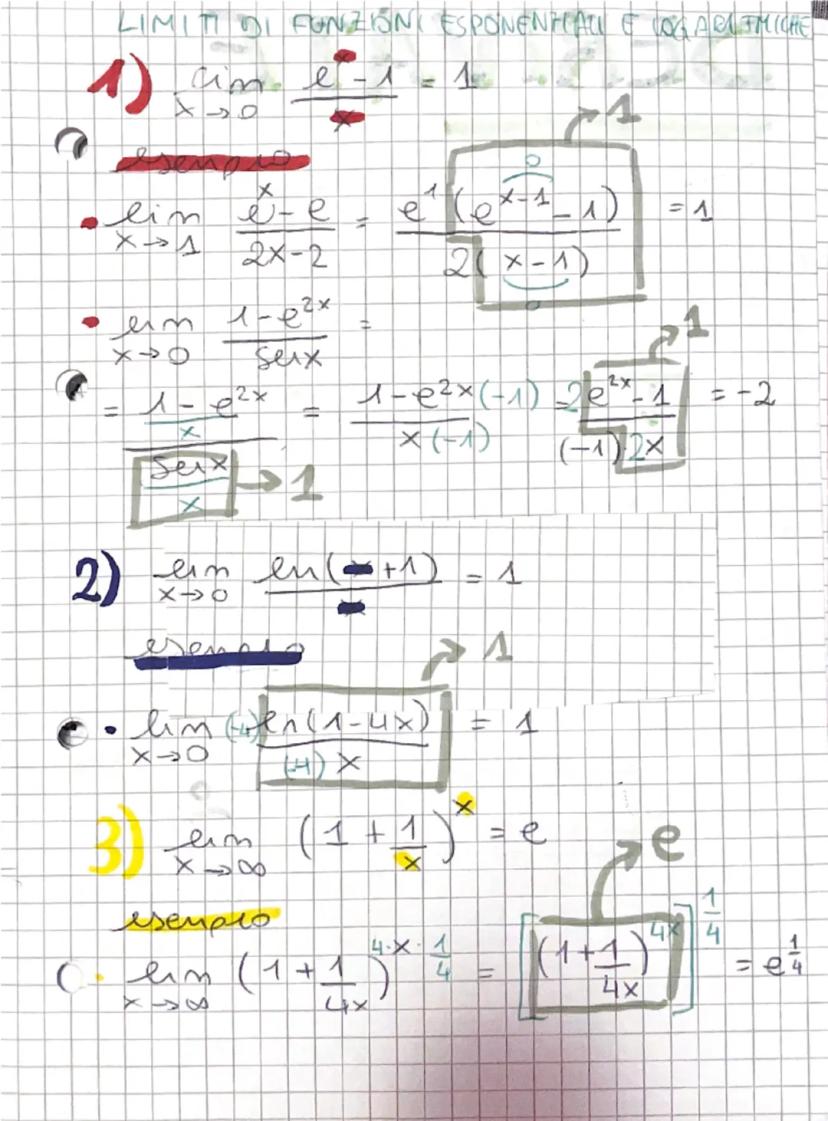 LIMITI DI FUNZIONI ESPONENZIALI E LOGARITMICHE
1) lim x→0 (e^x - 1)/x = 1
esempio
• lim x→1 (e^x - e)/(2x-2) = e^1 (e^(x-1) - 1)/2(x-1) = 1 → 1
0
0
• lim x→0 (1-e^2x)/senx =
= ((1-e^2x)/x)/(senx/x) = (1-e^2x (-1))/(x (-1)) = 2 (e^2x - 1)/((-1) 2x) = -2 → 1
→ 1
2) lim x→0 ln(x+1)/x = 1
esempio → 1
• lim x→0 (-4) ln(1-4x)/((-4) x) = 1
3) lim x→∞ (1 + 1/x)^x = e
→ e
esempio
• lim x→∞ (1 + 1/4x)^(4·x·1/4) = [(1 + 1/4x)^4x]^(1/4) = e^(1/4)